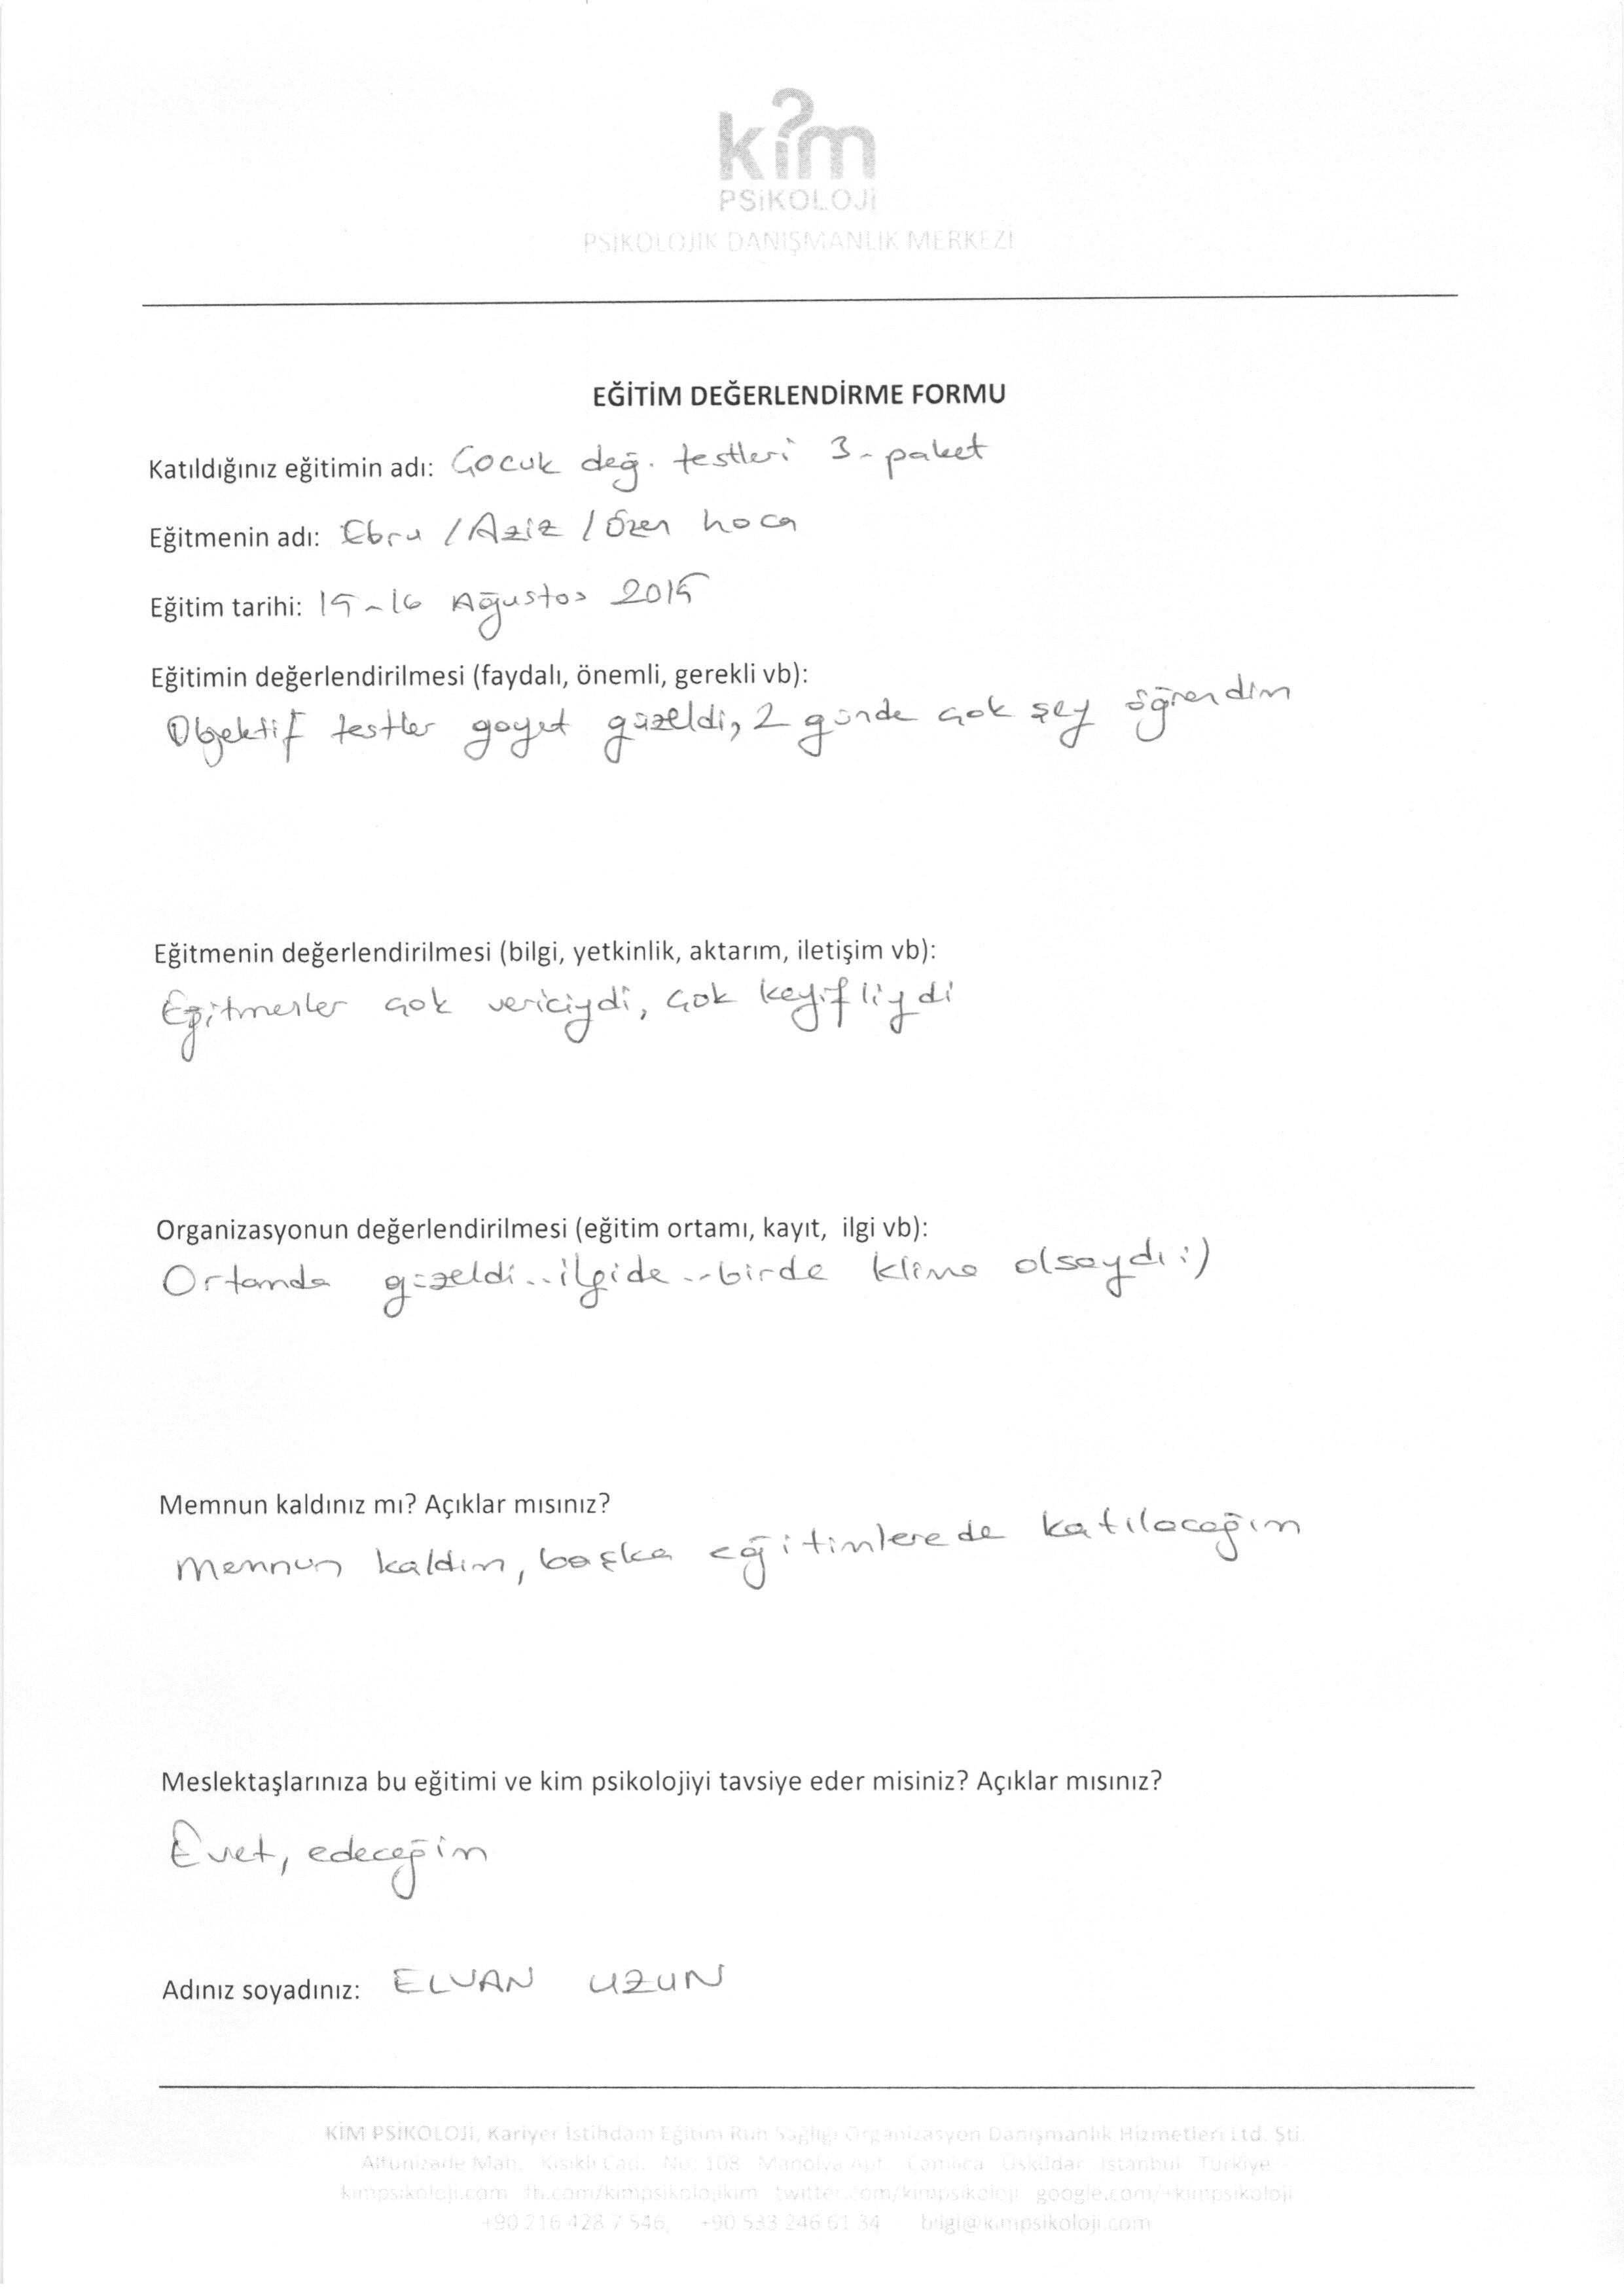 kim
PSiKOLOJi
PSİKOLOJİK DANIŞMANLIK MERKEZİ
EĞİTİM DEĞERLENDİRME FORMU
Katıldığınız eğitimin adı: Çocuk değ. testleri 3. paket
Eğitmenin adı: Ebru / Aziz / Özen hoca
Eğitim tarihi: 15-16 Ağustos 2015
Eğitimin değerlendirilmesi (faydalı, önemli, gerekli vb):
Objektif testler gayet güzeldi, 2 günde çok şey öğrendim
Eğitmenin değerlendirilmesi (bilgi, yetkinlik, aktarım, iletişim vb):
Eğitmenler çok vericiydi, çok keyifliydi
Organizasyonun değerlendirilmesi (eğitim ortamı, kayıt, ilgi vb):
Ortamda güzeldi..ilgide..birde klima olsaydı :)
Memnun kaldınız mı? Açıklar mısınız?
Memnun kaldım, başka eğitimlerede katılacağım
Meslektaşlarınıza bu eğitimi ve kim psikolojiyi tavsiye eder misiniz? Açıklar mısınız?
Evet, edeceğim
Adınız soyadınız: ELVAN UZUN
KİM PSİKOLOJİ, Kariyer İstihdam Eğitim Ruh Sağlığı Organizasyon Danışmanlık Hizmetleri Ltd. Şti.
Altunizade Mah. Kısıklı Cad. No: 108 Manolya Apt. Çamlıca Üsküdar İstanbul Türkiye
kimpsikoloji.com fb.com/kimpsikolojikim twitter.com/kimpsikoloji google.com/+kimpsikoloji
+90 216 428 7 546, +90 533 246 61 34 bilgi@kimpsikoloji.com